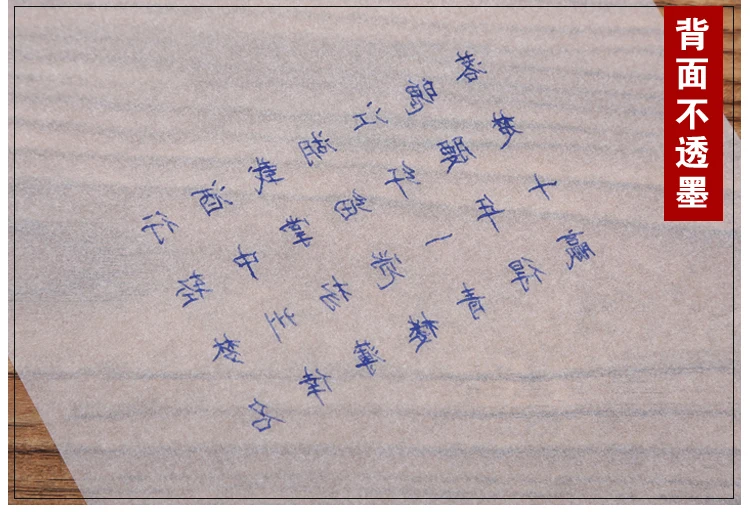 背面不透墨
落魄江湖载酒行
楚腰纤细掌中轻
十年一觉扬州梦
赢得青楼薄幸名